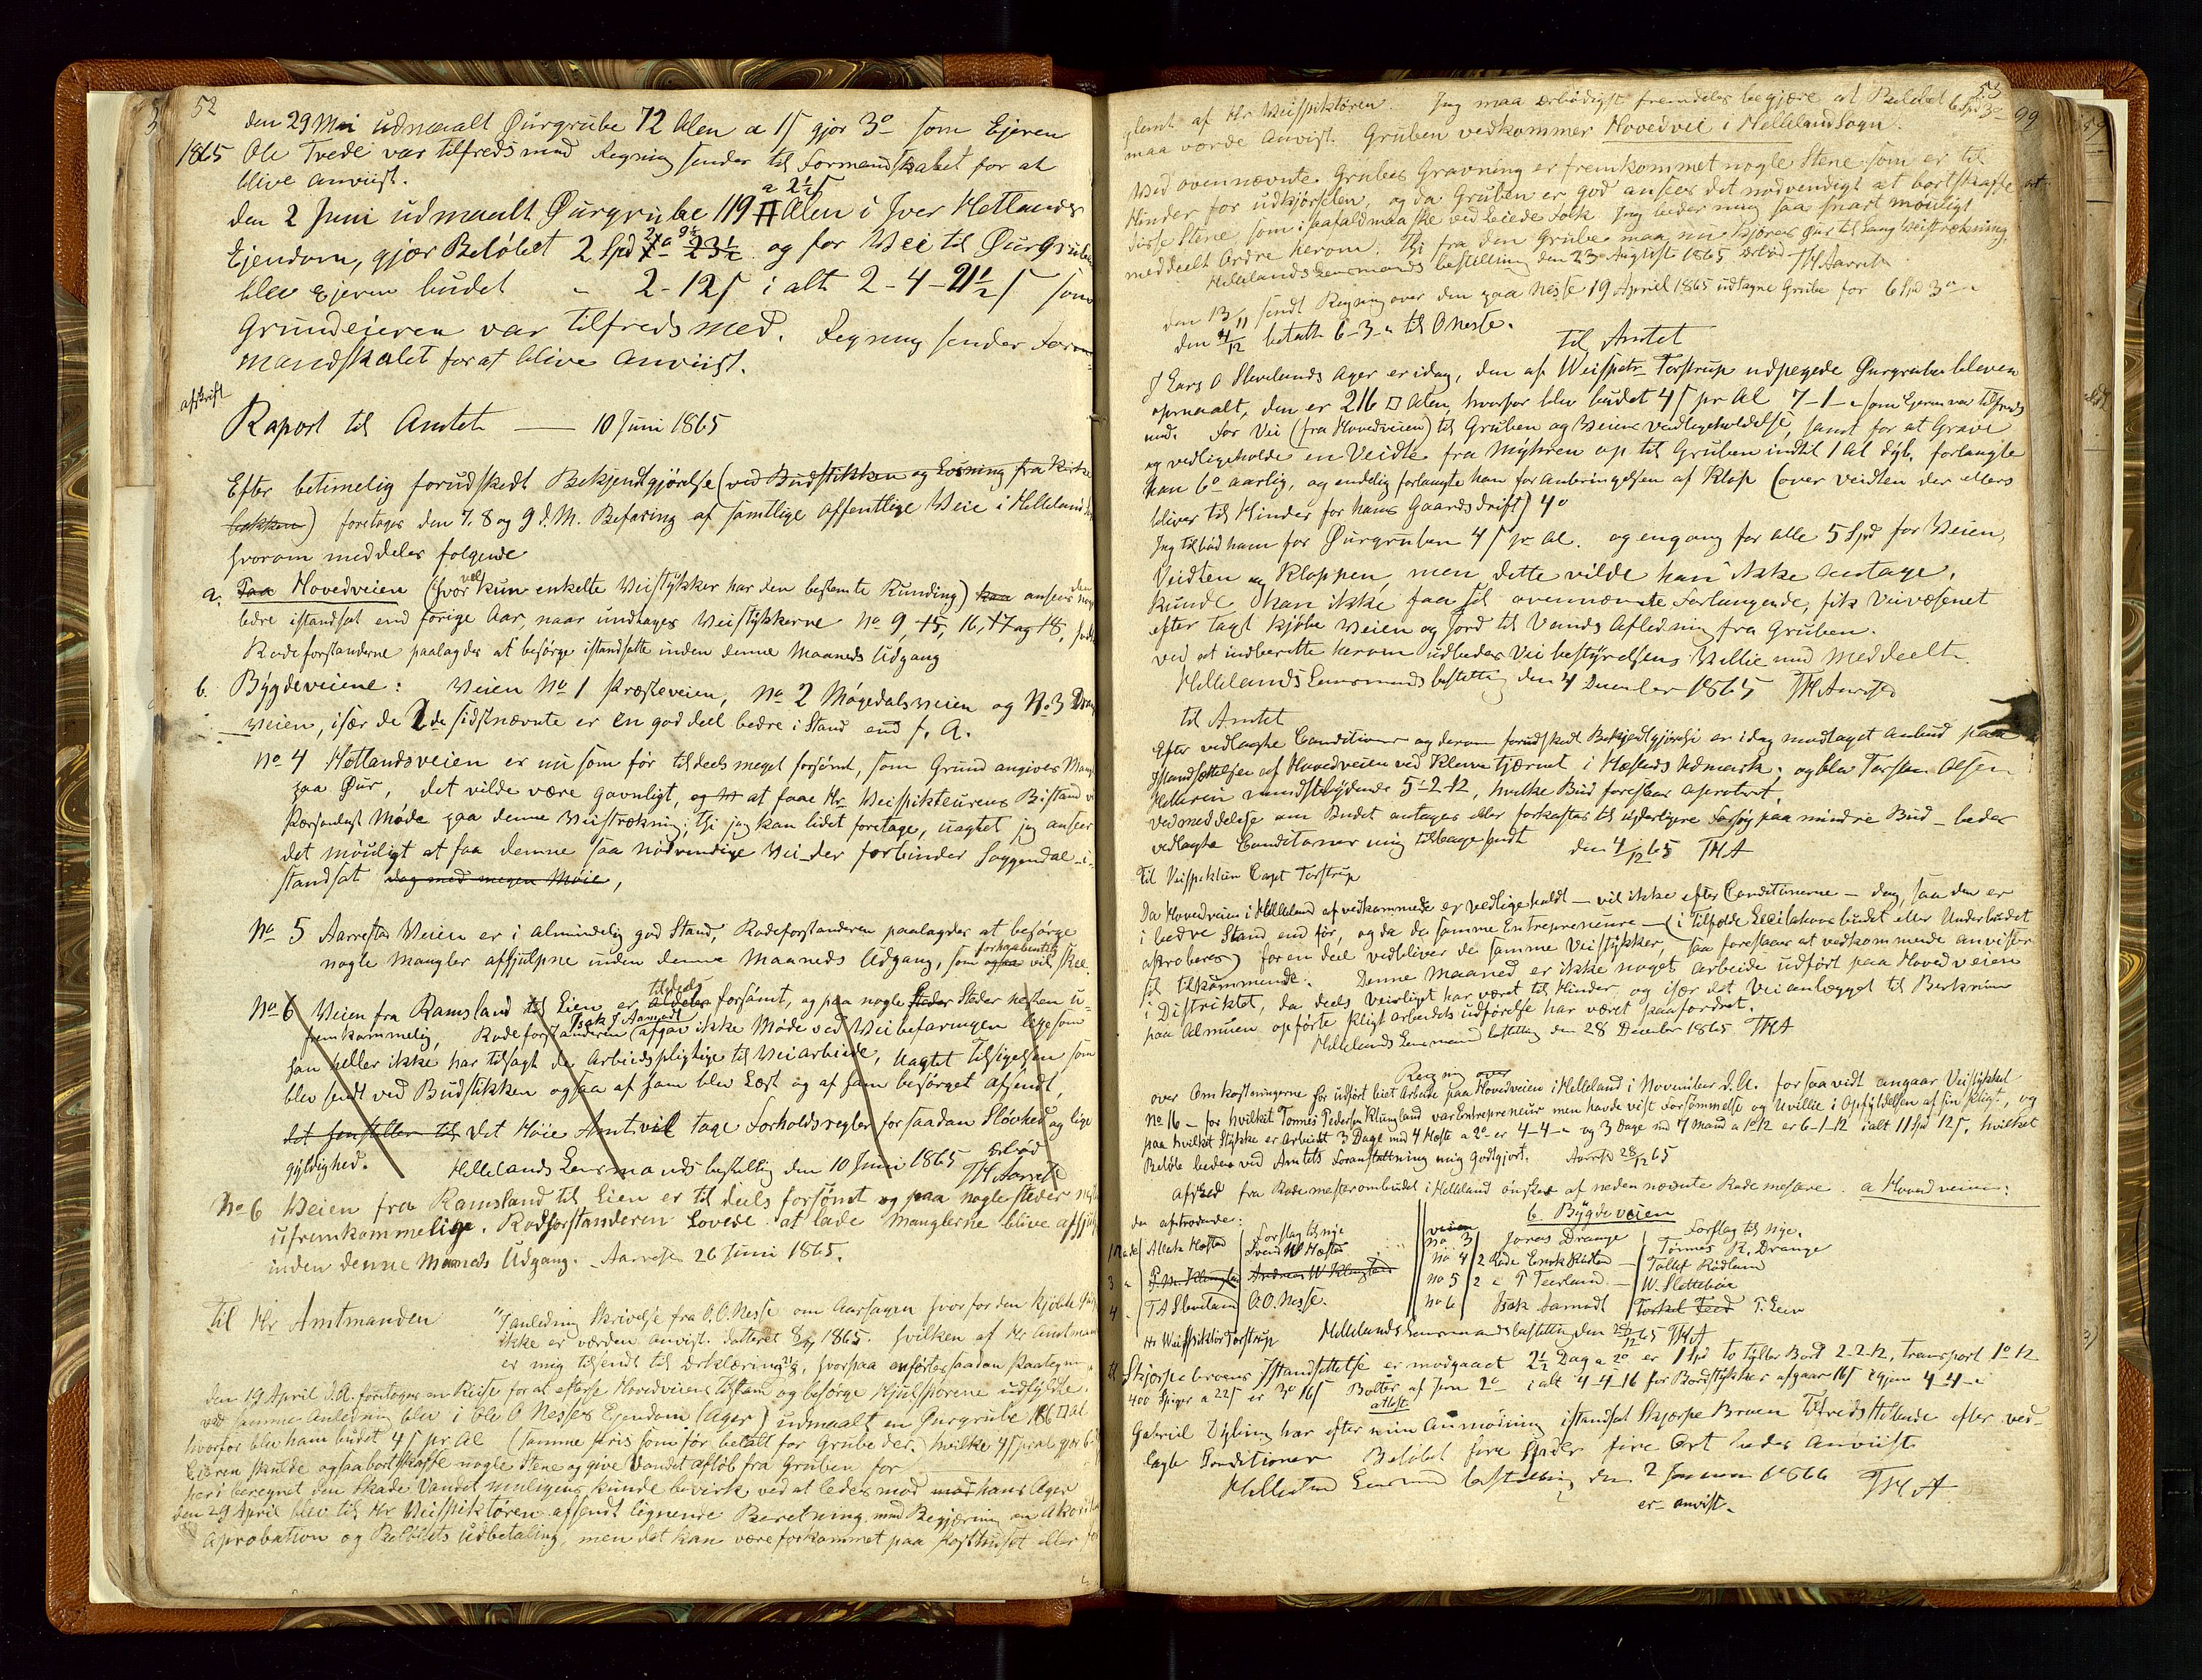 52
den 29 Mai udmaalt Øurgrube 72 Alen a 1 s gjør 3o som Ejeren
1865 Ole Tvede var tilfreds med Regning sender til Formandskabet for at
blive anviist.
a 2½ s
den 2 Juni udmaalt Øurgrube 119 □ Alen i Iver Hetlands
Ejendom, gjør Beløbet 2 Spd og for Vei til Øurgruben
blev Ejeren budet " 2-12 s i alt 2-4-21½ s som
Grundeieren var tilfreds med. Regning sender For-
mandskabet for at blive anviist.
afskrift
Raport til Amtet — 10 Juni 1865
Efter betimelig forudskedt Bekjendtgjørelse (ved Budstikken og Læsning fra Kirke
bakken) foretoges den 7. 8 og 9 d. M. Befaring af samtlige offentlige Veie i Helleland
hvorom meddeles følgende
a. Paa Hovedveien (hvor vel kun enkelte Veistykker har den bestemte Runding) kan ansees den
bedre istandsat end forige Aar, naar undtages Veistykkerne No 9, 15, 16, 17 og 18,
Rodeforstanderne paalagdes at besørge istandsatte inden denne Maaneds Udgang
b. Bygdeveiene: Veien No 1 Præsteveien, No 2 Møgedalsveien og No 3 Drange
veien, især de 2de sidstnævnte er en god deel bedre i Stand end f. A.
No 4 Hetlandsveien er nu som før tildeels meget forsømt, som Grund angives Mangel
paa Øur, det vilde være gavnligt, at faae Hr Veispikteurens Bistand
Personligt Møde paa denne Veistrækning; thi jeg kan lidet foretage, uagtet jeg anseer
det mouligt at faa denne saa nødvendige Vei der forbinder Soggendal i-
standsat dog med megen Møie,
No 5 Aarrestad Veien er i almindelig god Stand, Rodeforstanderen paalagdes at besørge
nogle Mangler afhjulpne inden denne Maaneds Udgang, som ogsaa forhaabentlig vil skee.
No 6 Veien fra Ramsland til Eien er aldeles tildeels forsømt, og paa nogle Steder næsten u-
fremkommelig, Rodeforstanderen Isak J Aamodt afgav ikke Møde ved Veibefaringen ligesom
han heller ikke har tilsagt de Arbeidspligtige til Veiarbeide, uagtet Tilsigelsen som
blev sendt ved Budstikken ogsaa af ham blev Læst og af ham besørget afsendt,
det Høie Amt vil tage Forholdsregler for saadan Sløvhed og lige
gyldighed. Hellelands Lensmandsbestilling den 10 Juni 1865 ærbød
TH Aarrestad
No 6 Veien fra Ramsland til Eien er til deels forsømt og paa nogle steder næsten
ufremkommelige. Rodforstanderen Lovede at lade Manglerne blive afhjulpne
inden denne Maaneds Udgang. Aarrestad 26 Juni 1865.
Til Hr Amtmanden "I anledning Skrivelse fra O. O. Nesse om Aarsagen hvorfor den kjøbte
ikke er vorden anvist. datteret 1865. hvilken af Hr Amtmand
er mig tilsendt til Erklæring, hvorpaa anføres saadan Paategning
den 19 April d. A. foretoges en Reise for at efterse Hovedveiens Tilstand og besørge Hjulsporene udfyldte.
ved samme Anledning blev i Ole O Nesses Ejendom (Ager) udmaalt en Øurgrube 186 □ Al
hvorfor blev ham budet 4 s pr Al (samme Pris som før betalt for Grube der.) hvilke 4 s pr al gjør
Ejeren skulde ogsaa bortskaffe nogle Stene og give Vandet afløb fra Gruben for
heri beregnet den Skade Vandet muligens kunde bevirke ved at ledes mod hans Ager
den 29 April blev til Hr Veispiktøren afsendt lignende Beretning med Begjæring om Akordens
Aprobation og Beløbets Udbetaling, men det kan være forkommet paa Posthuset eller
53
glemt af Hr. Veispiktøren. Jeg maa ærbødigst fremdeles begjære at Beløbet 6 Spd 3o 99
maa vorde Anvist. Gruben vedkommer Hovedvei i Hellelands Sogn.
Ved ovennævnte Grubes Gravning er fremkommet nogle Stene som er til
Hinder for udkjørselen, og da Gruben er god ansees det nødvendigt at bortskaffe
disse Stene som isaafald maa ske ved Leiede folk. Jeg beder mig saa snart mouligt
meddeelt Ordre herom. Thi fra den Grube maa nu kjøres Øur til lang Veistrækning.
Hellelands Lensmands bestilling den 23 August 1865 ærbød TH Aarrestad
den 13/11 sendt Regning over den paa Nesse 19 April 1865 udtagne Grube for 6 Spd 3o
den 4/12 betalt 6-3-" til O Nesse.
Til Amtet
I Lars O Slevelands Ager er idag, den af Veispektr Torstrup udpegede Øurgrube bleven
opmaalt, den er 216 □ Alen, hvorfor blev budet 4 s pr Al 7-1-" som Ejeren var tilfreds
med. For Vei (fra Hovedveien) til Gruben og Veiens Vedligeholdelse, samt for at Grave
og vedligeholde en Veidte fra Myhren op til Gruben indtil 1 Al dyb, forlangte
han 6o aarlig, og endelig forlangte han for Anbringelsen af Klop (over veidten der ellers
bliver til Hinder for hans Gaardsdrift) 4o
Jeg tilbød ham for Øurgruben 4 s pr Al. og engang for alle 5 Spd for Veien,
Veidten og Kloppen, men dette vilde han ikke Antage.
Kunde han ikke faa sit ovennævnte Forlangende, fik Veivæsenet
efter tagt kjøbe Veien og Jord til Vands Afledning fra Gruben.
ved at indberette herom udbedes Vei bestyrelsens Villie mig Meddeelt.
Hellelands Lensmandsbestilling den 4 December 1865 TH Aarrestad
til Amtet
Efter vedlagte Conditioner og derom forudskedt Bekjendtgjørelse er idag modtaget Anbud paa
Istandsættelsen af Hovedveien ved Kleven Tjærnet i Hæstads Udmark; og blev Torsten Olsen
mindstbydende 5-2-12, hvilke Bud foreslaaes aproberet.
ved meddelelse om Budet antages eller forkastes til yderligere Forsøg paa mindre Bud - bedes
vedlagte Conditioner mig tilbagesendt den 4/12 65 THA
Til Veispektøren Capt Torstrup
Da Hovedveien i Helleland af vedkommende er vedligeholdt - vel ikke efter Conditionerne - dog saa den er
i bedre Stand end før, og da de samme Entrepreneure - (i tilfælde Licitations budet eller Underbudet
aproberes) for en deel vedbliver de samme Veistykker, saa foreslaaes at vedkommende anvises
sit tilkommende. Denne Maaned er ikke noget Arbeide udført paa Hovedveien
i Distriktet, da deels Veirliget har været til Hinder, og især det Veianlægget til Berkrem
paa Almuen opførte Pligtarbeids udførelse har været paafordret.
Hellelands Lensmands bestilling den 28 December 1865 THA
Regning over
over Omkostningerne for udført leiet Arbeide paa Hovedveien i Helleland i November d. A. forsaavidt angaar Veistykket
No 16 - for hvilket Tørnes Pedersen Klungland var Entrepreneur men havde vist Forsømmelse og Uvillie i Opfyldelsen af sin Pligt, og
paa hvilket Stykke er Arbeidet 3 Dage med 4 Heste a 2o er 4-4-" og 3 Dage med 7 Mand a 1o 12 er 6-1-12 ialt 11 Spd 12 s. hvilket
Beløb bedes ved Amtets Foranstaltning mig Godtgjort. Aarrest 28/12 65
Afsked fra Rodemesterombudet i Helleland ønskes af neden nævnte Rodemestere. a Hovedveien:
de aftrædende: Forslag til nye b. Bygdeveien Forslag til nye.
Albert Hæstad Svend Hæstad veien No 3 Jonas Drange Tønnes R. Drange
No 4 2 Rode Enok Ridlan Tollef Ridland
3 Klungland Andreas W Klungland No 5 2 " P Teerland W. Slettebøe
4 T A Sleveland O. O. Nesse. No 6 Isak Aamodt T. Eien
Hr Veispiktør Torstrup Hellelands Lensmandsbestilling den 28/12 65 THA
til Skjørpebroens Istandsettelse er medgaaet 2½ Dag a 2o er 1 Spd to Tylter Bord 2-2-12, transport 1o 12
400 Spiger a 22 s er 3o 16 s Bolter af Jern 2o ialt 4-4-16 for Bordstykker afgaar 16 s igjen 4-4-"
atlest
Gabriel Dybing har efter min Anmodning istandsat Skjørpe Broen Tilfredsstilende efter ved-
lagte Conditioner Beløbet fire Spdr fire Ort bedes Anviist
Helleland Lensmd bestilling den 2 Januar 1866 TH. A
er anvist.